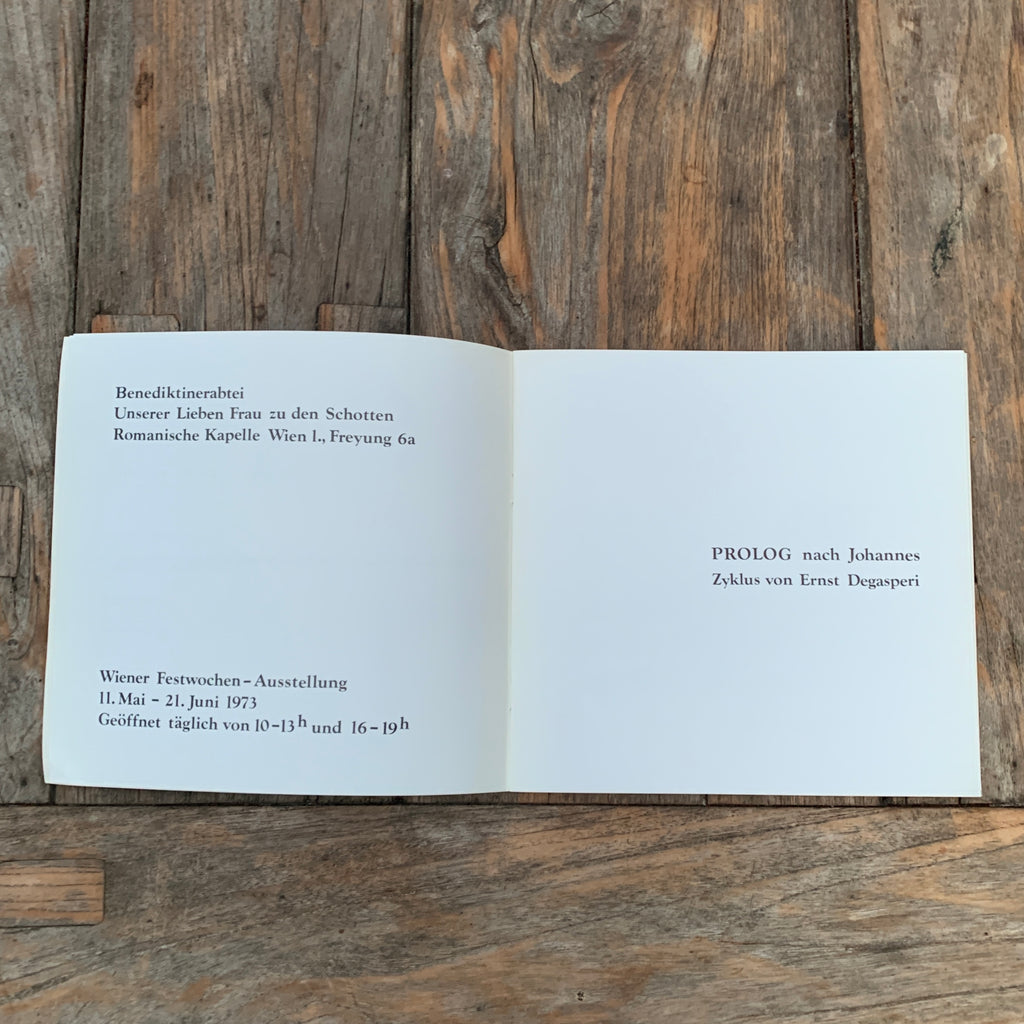 Benediktinerabtei
Unserer Lieben Frau zu den Schotten
Romanische Kapelle Wien 1., Freyung 6a
Wiener Festwochen – Ausstellung
11. Mai – 21. Juni 1973
Geöffnet täglich von 10 – 13h und 16 – 19h
PROLOG nach Johannes
Zyklus von Ernst Degasperi